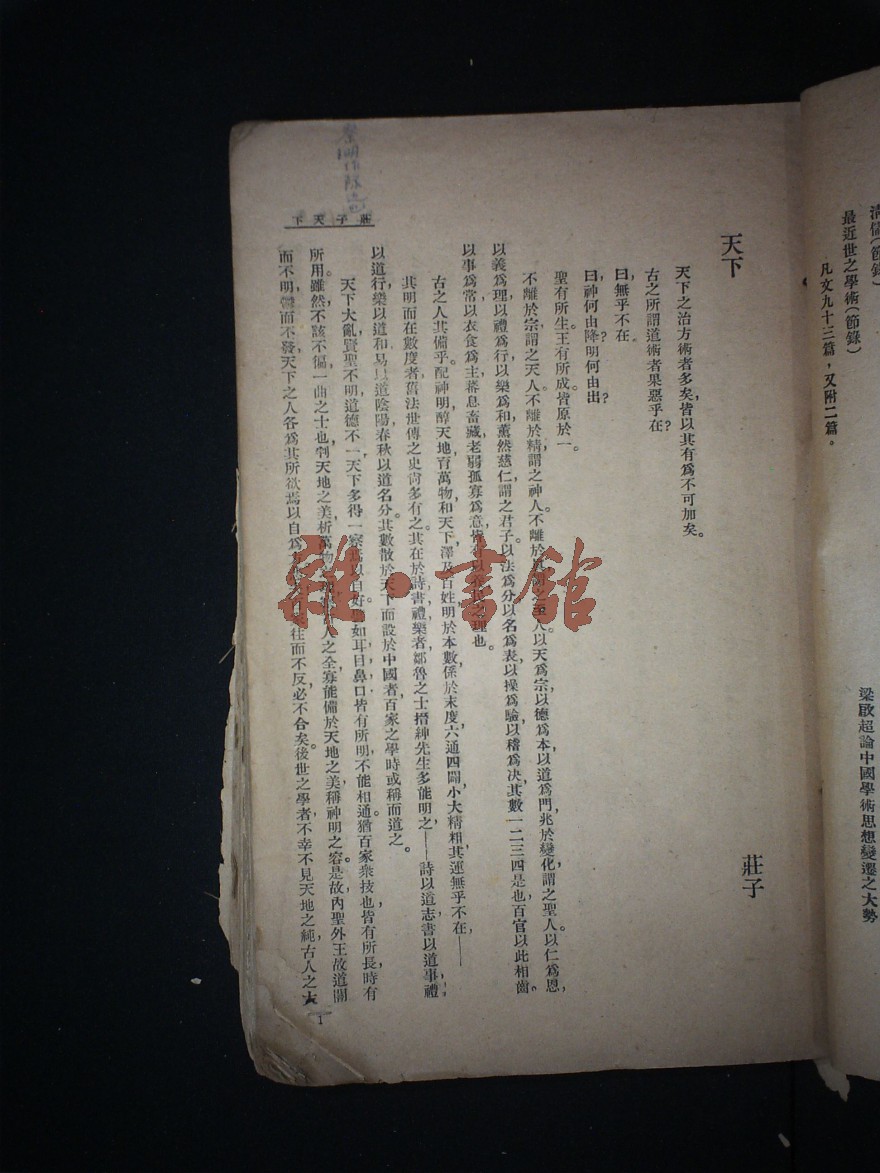 最近世之學術(節錄)
凡文九十三篇，又附二篇。
梁啟超論中國學術思想變遷之大勢
天下
莊子
天下之治方術者多矣，皆以其有爲不可加矣。
古之所謂道術者果惡乎在？
曰：無乎不在。
曰：神何由降，明何由出？
聖有所生，王有所成，皆原於一。
不離於宗，謂之天人。不離於精，謂之神人。不離於眞，謂之至人。以天爲宗，以德爲本，以道爲門，兆於變化，謂之聖人。以仁爲恩，
以義爲理，以禮爲行，以樂爲和，薰然慈仁，謂之君子。以法爲分，以名爲表，以操爲驗，以稽爲决，其數一二三四是也，百官以此相齒。
以事爲常，以衣食爲主，蕃息畜藏，老弱孤寡爲意，皆有以養民之理也。
古之人其備乎。配神明，醇天地，育萬物，和天下，澤及百姓，明於本數，係於末度，六通四闢，小大精粗，其運無乎不在——
其明而在數度者，舊法世傳之史尙多有之。其在於詩書禮樂者，鄒魯之士，搢紳先生，多能明之——詩以道志，書以道事，禮
以道行，樂以道和，易以道陰陽，春秋以道名分。其數散於天下而設於中國者，百家之學時或稱而道之。
天下大亂，賢聖不明，道德不一，天下多得一察焉以自好。譬如耳目鼻口，皆有所明，不能相通，猶百家衆技也，皆有所長，時有
所用。雖然，不該不徧，一曲之士也。判天地之美，析萬物之理，察古人之全，寡能備於天地之美，稱神明之容。是故內聖外王故道，闇
而不明，鬱而不發，天下之人，各爲其所欲焉以自爲方。悲夫，百家往而不反，必不合矣。後世之學者，不幸不見天地之純，古人之大
莊子天下
1
雜·書館